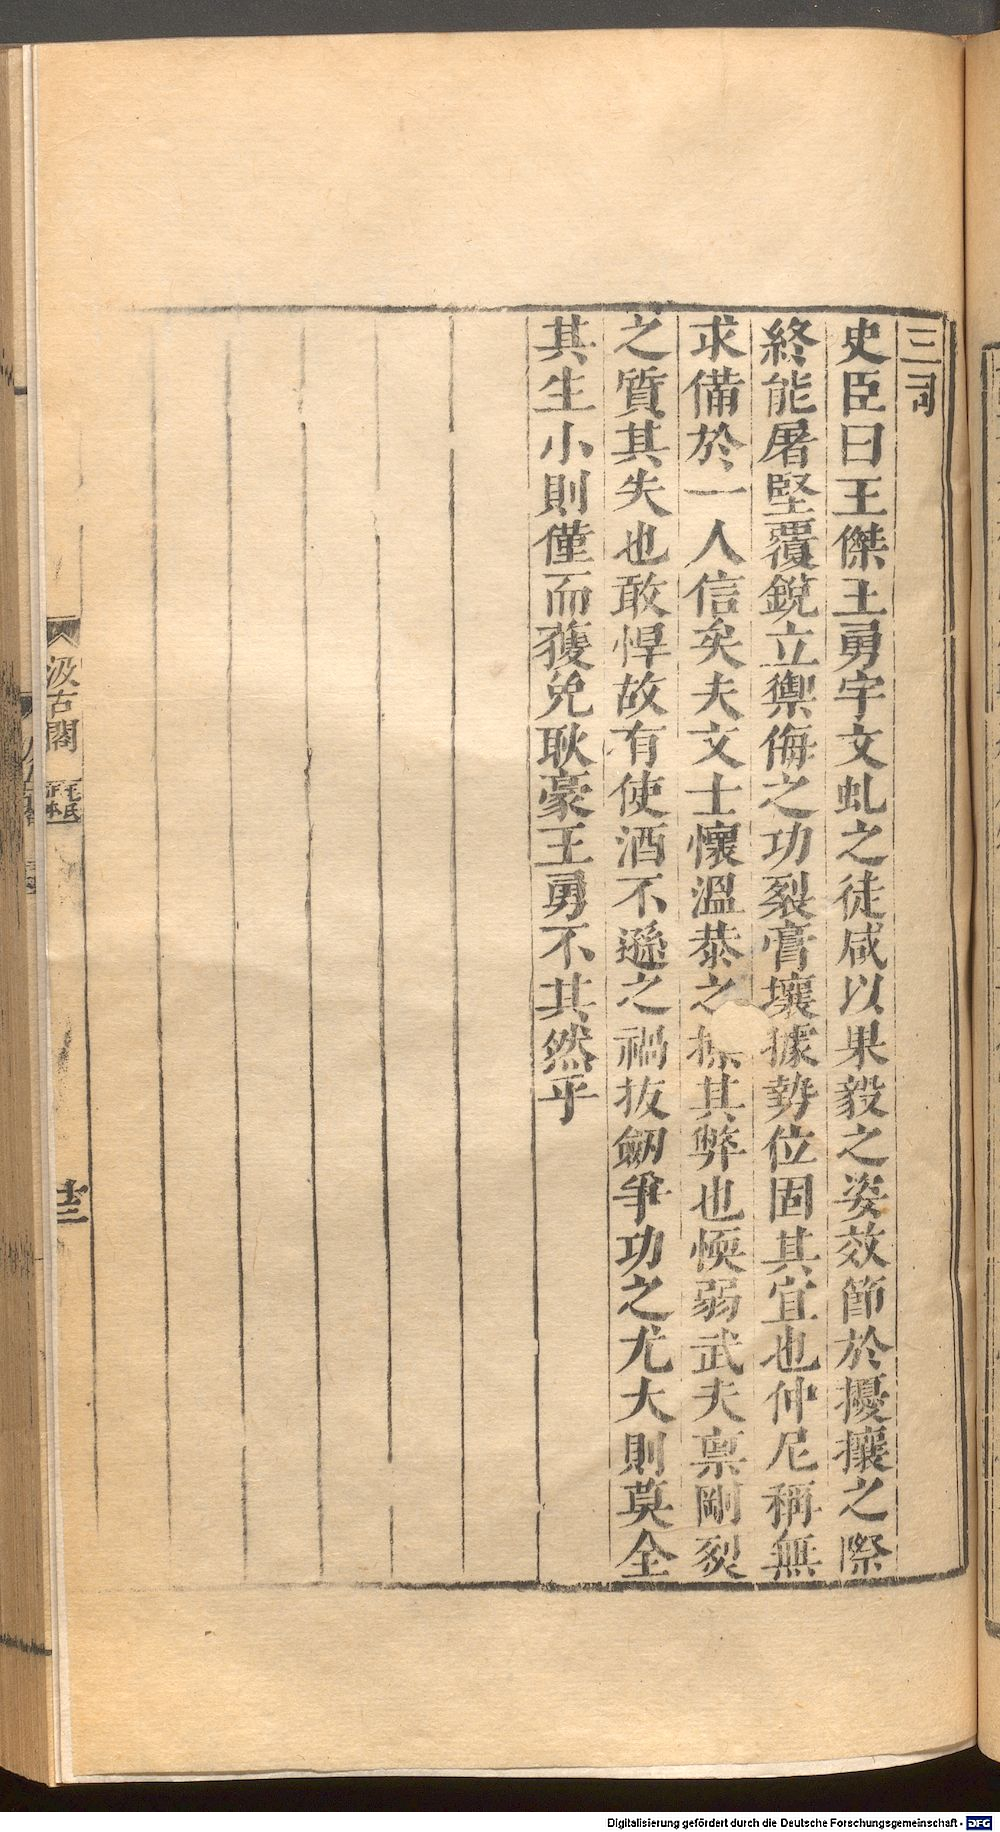 三司
史臣曰王傑王勇宇文虬之徒咸以果毅之姿效節於擾攘之際
終能屠堅覆銳立禦侮之功裂膏壤據勢位固其宜也仲尼稱無
求備於一人信矣夫文士懷溫恭之其弊也愞弱武夫稟剛裂
之質其失也敢悍故有使酒不遜之禍拔劒爭功之尤大則莫全
其生小則僅而獲免耿豪王勇不其然乎
汲古閣
毛氏
正本
十二
Digitalisierung gefördert durch die Deutsche Forschungsgemeinschaft - DFG